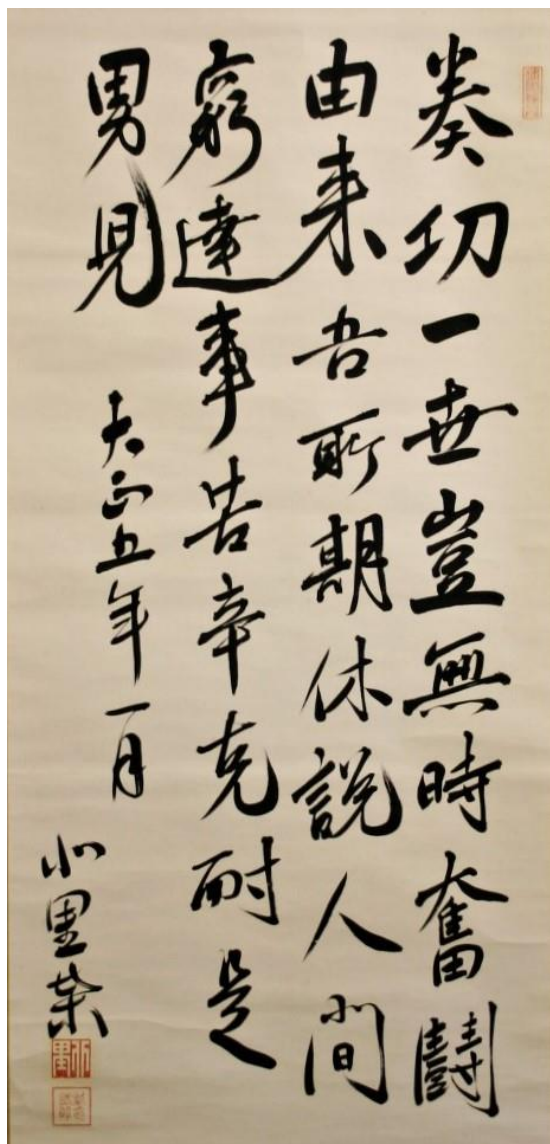 奏功一世豈無時奮鬪
由来吾所期休説人間
窮達事苦辛克耐是
男児 大正五年一月
北里柴